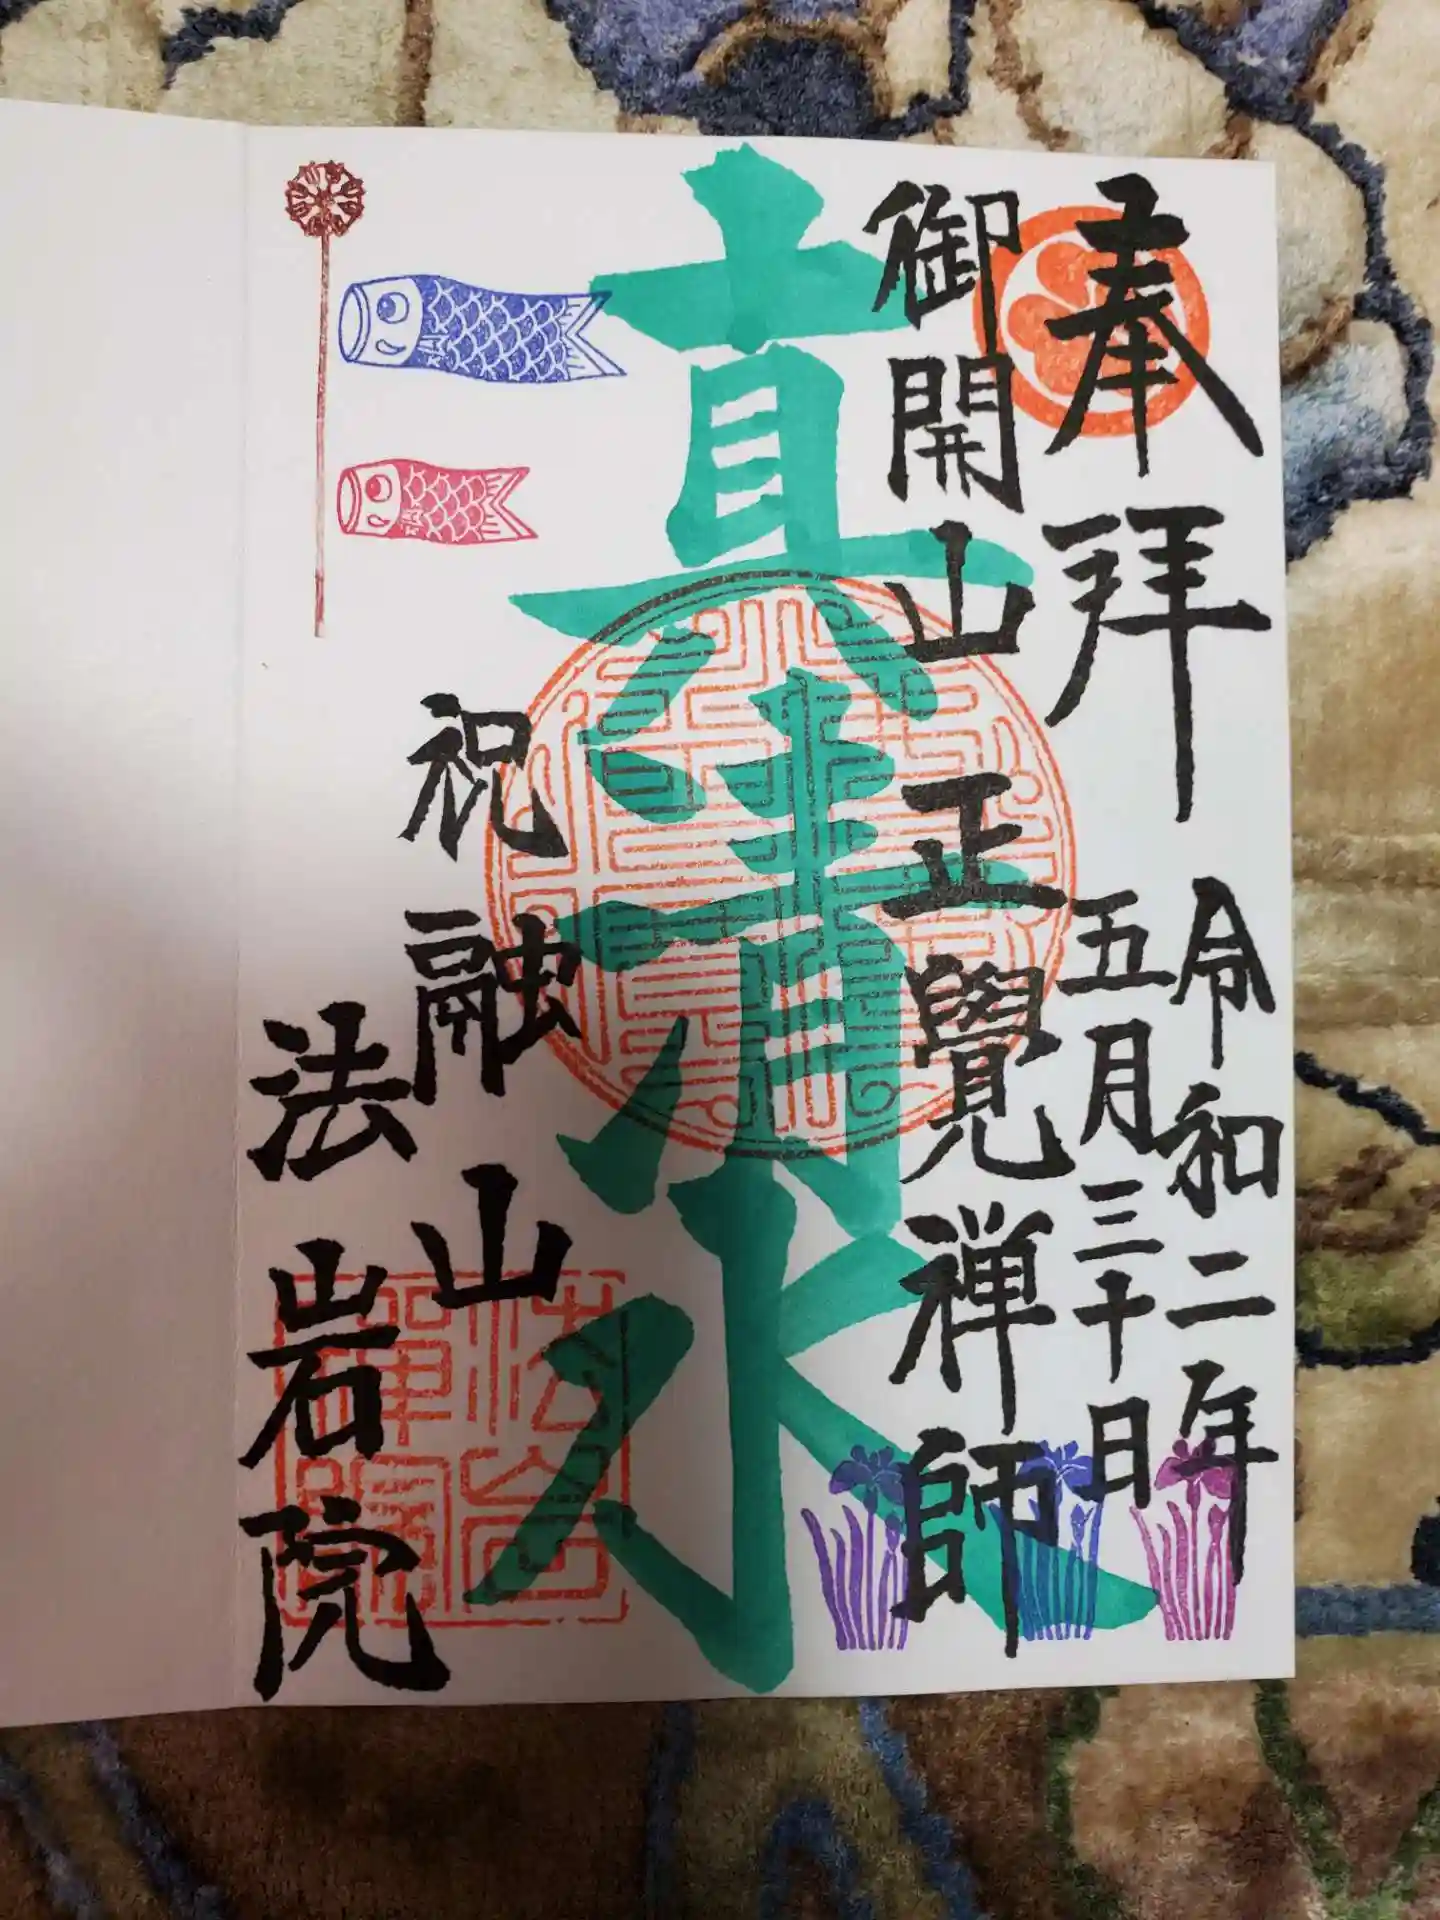 奉拝
令和二年
五月三十日
御開山正覺禅師
真清水
祝融山
法岩院